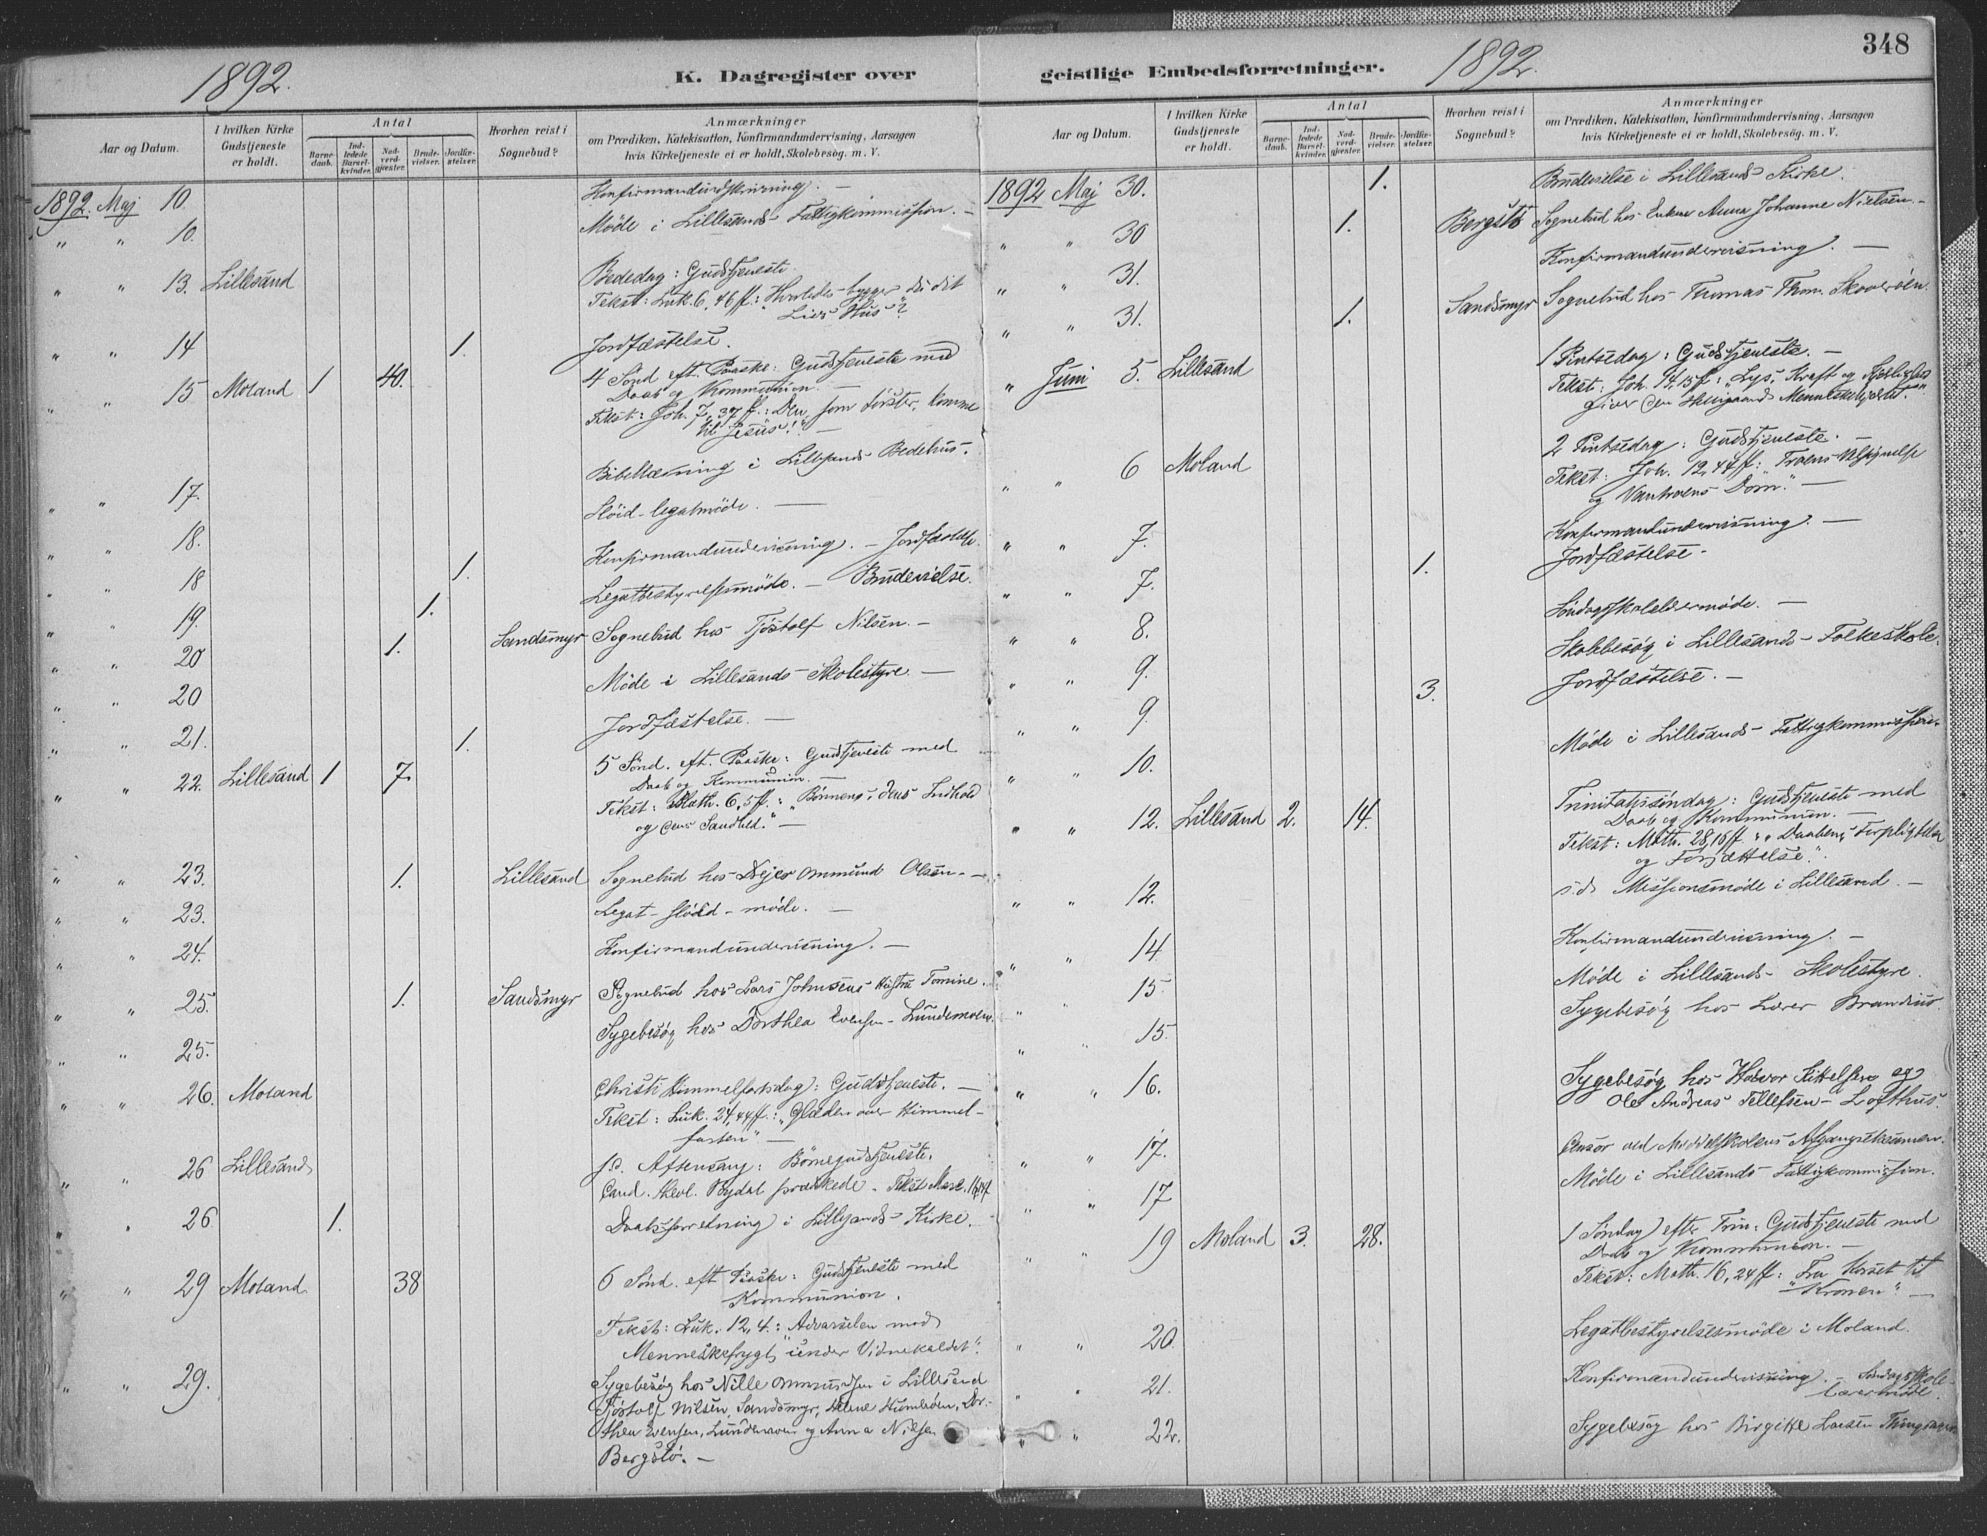 348
1892.
K. Dagregister over
geistlige Embedsforretninger.
1892.
Aar og Datum.
I hvilken Kirke Gudstjeneste er holdt.
Antal
Barne-daab.
Ind-ledede Barsel-kvinder.
Nad-verd-gjester.
Brude-vielser.
Jordfæ-stelser.
Hvorhen reist i Sognebud?
Anmærkninger
om Prædiken, Katekisation, Konfirmandundervisning, Aarsagen
hvis Kirketjeneste ei er holdt, Skolebesøg. m. V.
1892. Maj 10. Konfirmandindskrivning. —
" " 10. Møde i Lillesands Fattigkommission. —
" " 13. Lillesand Bededag: Gudstjeneste.
Tekst: Luk. 6, 46 ff.: "Hvorledes bygger Du dit
Livs Hus"?
" " 14 1. Jordfæstelse.
" " 15 Moland 1 40. 4 Sønd. eft. Paaske: Gudstjeneste med
Daab og Kommunion. —
Tekst: Joh. 7, 37 ff.: "Den, som tørster, komme
til Jesus!" —
" " 17. Bibellæsning i Lillesands Bedehus.
" " 18. Sløid-legatmøde. —
" " 18 1. Konfirmandundervisning. — Jordfæstelse.
" " 19. 1. Legatbestyrelsesmøde. — Brudevielse.
" " 20 1. Sandsmyr Sognebud hos Tjøstolf Nilsen. —
" " 20 Møde i Lillesands Skolestyre. —
" " 21. 1. Jordfæstelse. —
" " 22. Lillesand 1 7. 5 Sønd. eft. Paaske: Gudstjeneste med
Daab og Kommunion. —
Tekst: Math. 6, 5 ff.: "Bønnens, dens Indhold
og dens Sandhed." —
" " 23. 1. Lillesand Sognebud hos Ommund Olsen. —
" " 23. Legat-sløid-møde. —
" " 24. Konfirmandundervisning. —
" " 25. 1. Sandsmyr Sognebud hos Lars Johnsens Hustru Tomine.
" " 25. Sygebesøg hos Dorthea Evensen — Lundemoen.
" " 26. Moland Christi Himmelfartsdag: Gudstjeneste. —
Tekst: Luk. 24, 44 ff.: "Glæden over Himmel-
farten" —
" " 26 Lillesand s.d. Aftensang: Børnegudstjeneste.
Cand. theol. prædikede — Tekst Marc. 16
" " 26 1. Daabsforretning i Lillesands Kirke.
" " 29 Moland 38 6 Sønd. eft Paaske: Gudstjeneste med
Kommunion.
Tekst: Luk. 12, 4.: "Advarselen mod
Menneskefrygt under Vidnekaldet".
" " 29. Sygebesøg hos Nille Ommundsen i Lillesand
Tjøstolf Nilsen, Sandsmyr, Helene Dor-
thea Evensen, Lundemoen og Anna Nilsen
Bergstø. —
1892 Maj 30. 1. Brudevielse i Lillesands Kirke.
" " 30 1. Bergstø Sognebud hos Enken Anna Johanne Nielsen. —
" " 31. Konfirmandundervisning. —
" " 31. 1. Sandsmyr Sognebud hos Thomas Thom.
" Juni 5. Lillesand 1 Pintsedag: Gudstjeneste. —
Tekst: Joh. 14, 15 ff: "Lys, Kraft og Kjærlighed
giver den Helligaand Menneskehjertet." —
" " 6 Moland 2 Pintsedag: Gudstjeneste.
Tekst: Joh. 12, 44 ff: "Troens Velsignelse
og Vantroens Dom." —
" " 7. Konfirmandundervisning. —
" " 7. 1. Jordfæstelse. —
" " 8. Søndagsskolelærermøde. —
" " 9. Skolebesøg i Lillesands Folkeskole.
" " 9 3. Jordfæstelse. —
" " 10. Møde i Lillesands Fattigkommission.
" " 12. Lillesand 2. 14. Trinitatissøndag: Gudstjeneste med
Daab og Kommunion. —
Tekst: Math. 28, 18 ff: "Daabens Forpligtelse
og Forjættelse".
" " 12. s.d. Missionsmøde i Lillesand. —
" " 14 Konfirmandundervisning. —
" " 15. Møde i Lillesands Skolestyre.
" " 15. Sygebesøg hos Lærer
" " 16. Sygebesøg hos Halvor Kittelsen og
Ole Andreas Tellefsen — Lofthus.
" " 17. Censor ved Middelskolens Afgangseksamen.
" " 17 Møde i Lillesands Fattigkommission.
" " 19 Moland 3. 28. 1 Søndag efter Trin: Gudstjeneste med
Daab og Kommunion. —
Tekst: Math. 16, 24 ff: "Fra Korset til
Kronen" —
" " 20. Legatbestyrelsesmøde i Moland.
" " 21. Konfirmandundervisning. — Søndagsskole-
lærermøde.
" " 22. Sygebesøg hos Birgitte Larsen